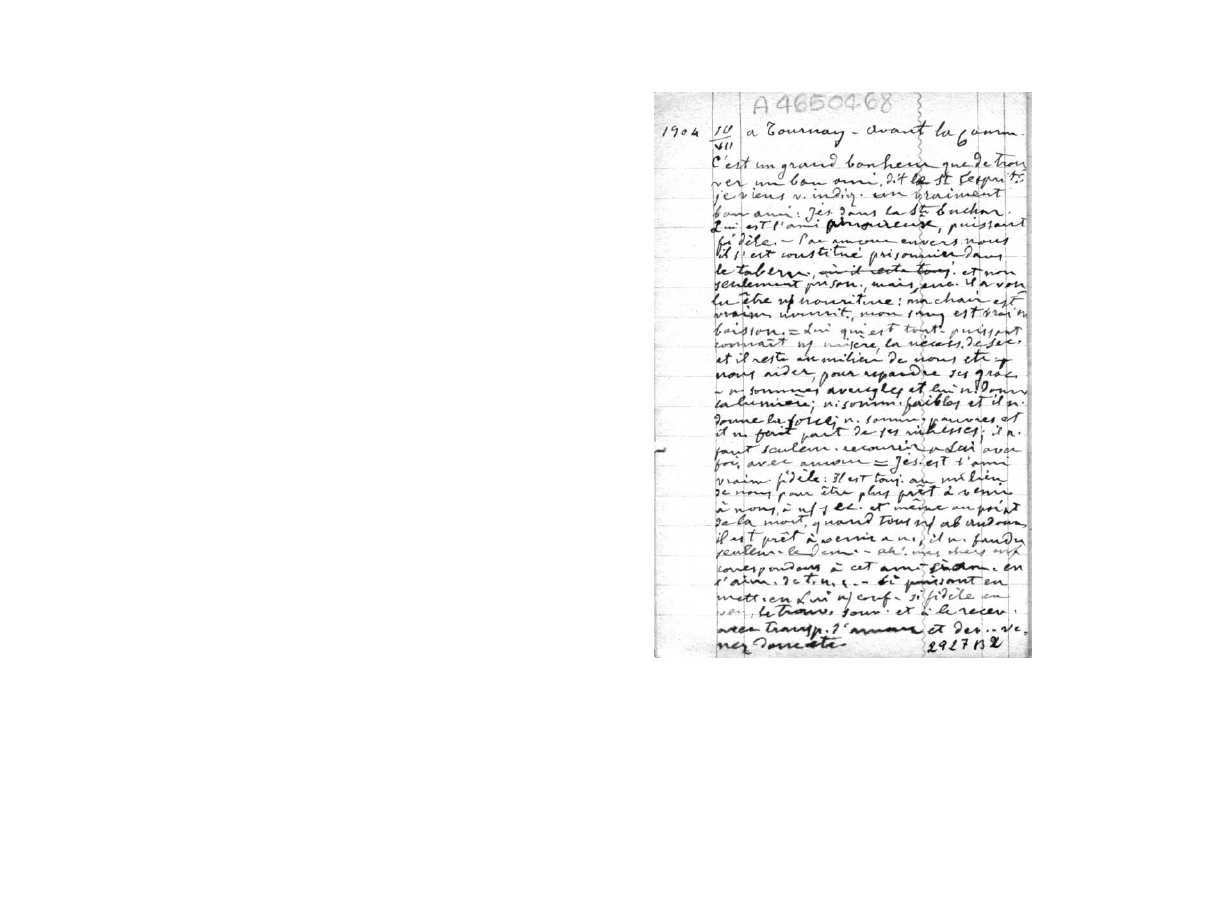 A4650468
1904 IV/VII a Tournay - avant la comm.
C'est un grand bonheur que de trou
ver un bon ami, dit le St Esprit
je viens v. indiq. un vraiment
bon ami: Jés dans la Ste Euchar.
Lui est l'ami amoureux, puissant
fidèle. - Par amour envers nous
il s'est constitué prisonnier dans
le tabern., où il reste touj. et non
seulement prison., mais enc. il a vou
lu être n/ nourriture: ma chair est
vraim nourrit., mon sang est vraim
boisson. = Lui qui est tout-puissant
connait n/ misère, la nécess. de sec.
et il reste au milieu de nous etc
nous aider, pour repandre ses grâc.
- n. sommes aveugles et lui n. donne
la lumière; n. somm. faibles et il n.
donne la force; n. somm. pauvres et
il n. fait part de ses richesses; il n.
faut seulem. recourir a Lui avec
foi, avec amour = Jés. est l'ami
vraim. fidèle: Il est touj. au milieu
de nous pour être plus prêt à venir
à nous, à n/ et même au point
de la mort, quand tous n/ abandonn
il est prêt à venir a n., il n. faudra
seulem. le - ah! mes chers
correspondons à cet ami en
l'aim. de t. n. c. - Si puissant en
mett. en Lui n/ conf. - si fidèle en
le trouv. souv. et à le recev.
avec transp. d'amour et de .. ve.
nez donc etc.
2927 B2